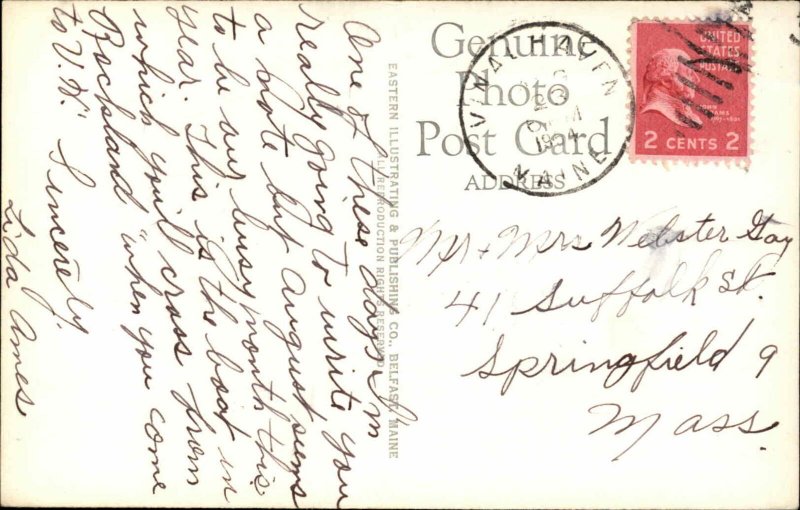 One of these days I'm
really going to write you
a note but August seems
to be our busy month this
year. This is the boat in
which you'll cross from
Rockland "when you come
to V.H." Sincerely,
Lida Ames
EASTERN ILLUSTRATING & PUBLISHING CO., BELFAST, MAINE
ALL REPRODUCTION RIGHTS RESERVED
Genuine
Photo
Post Card
ADDRESS
VINALHAVEN
MAINE
UNITED
STATES
POSTAGE
2 CENTS 2
Mr + Mrs Webster Gay
41 Suffolk St.
Springfield 9
Mass.